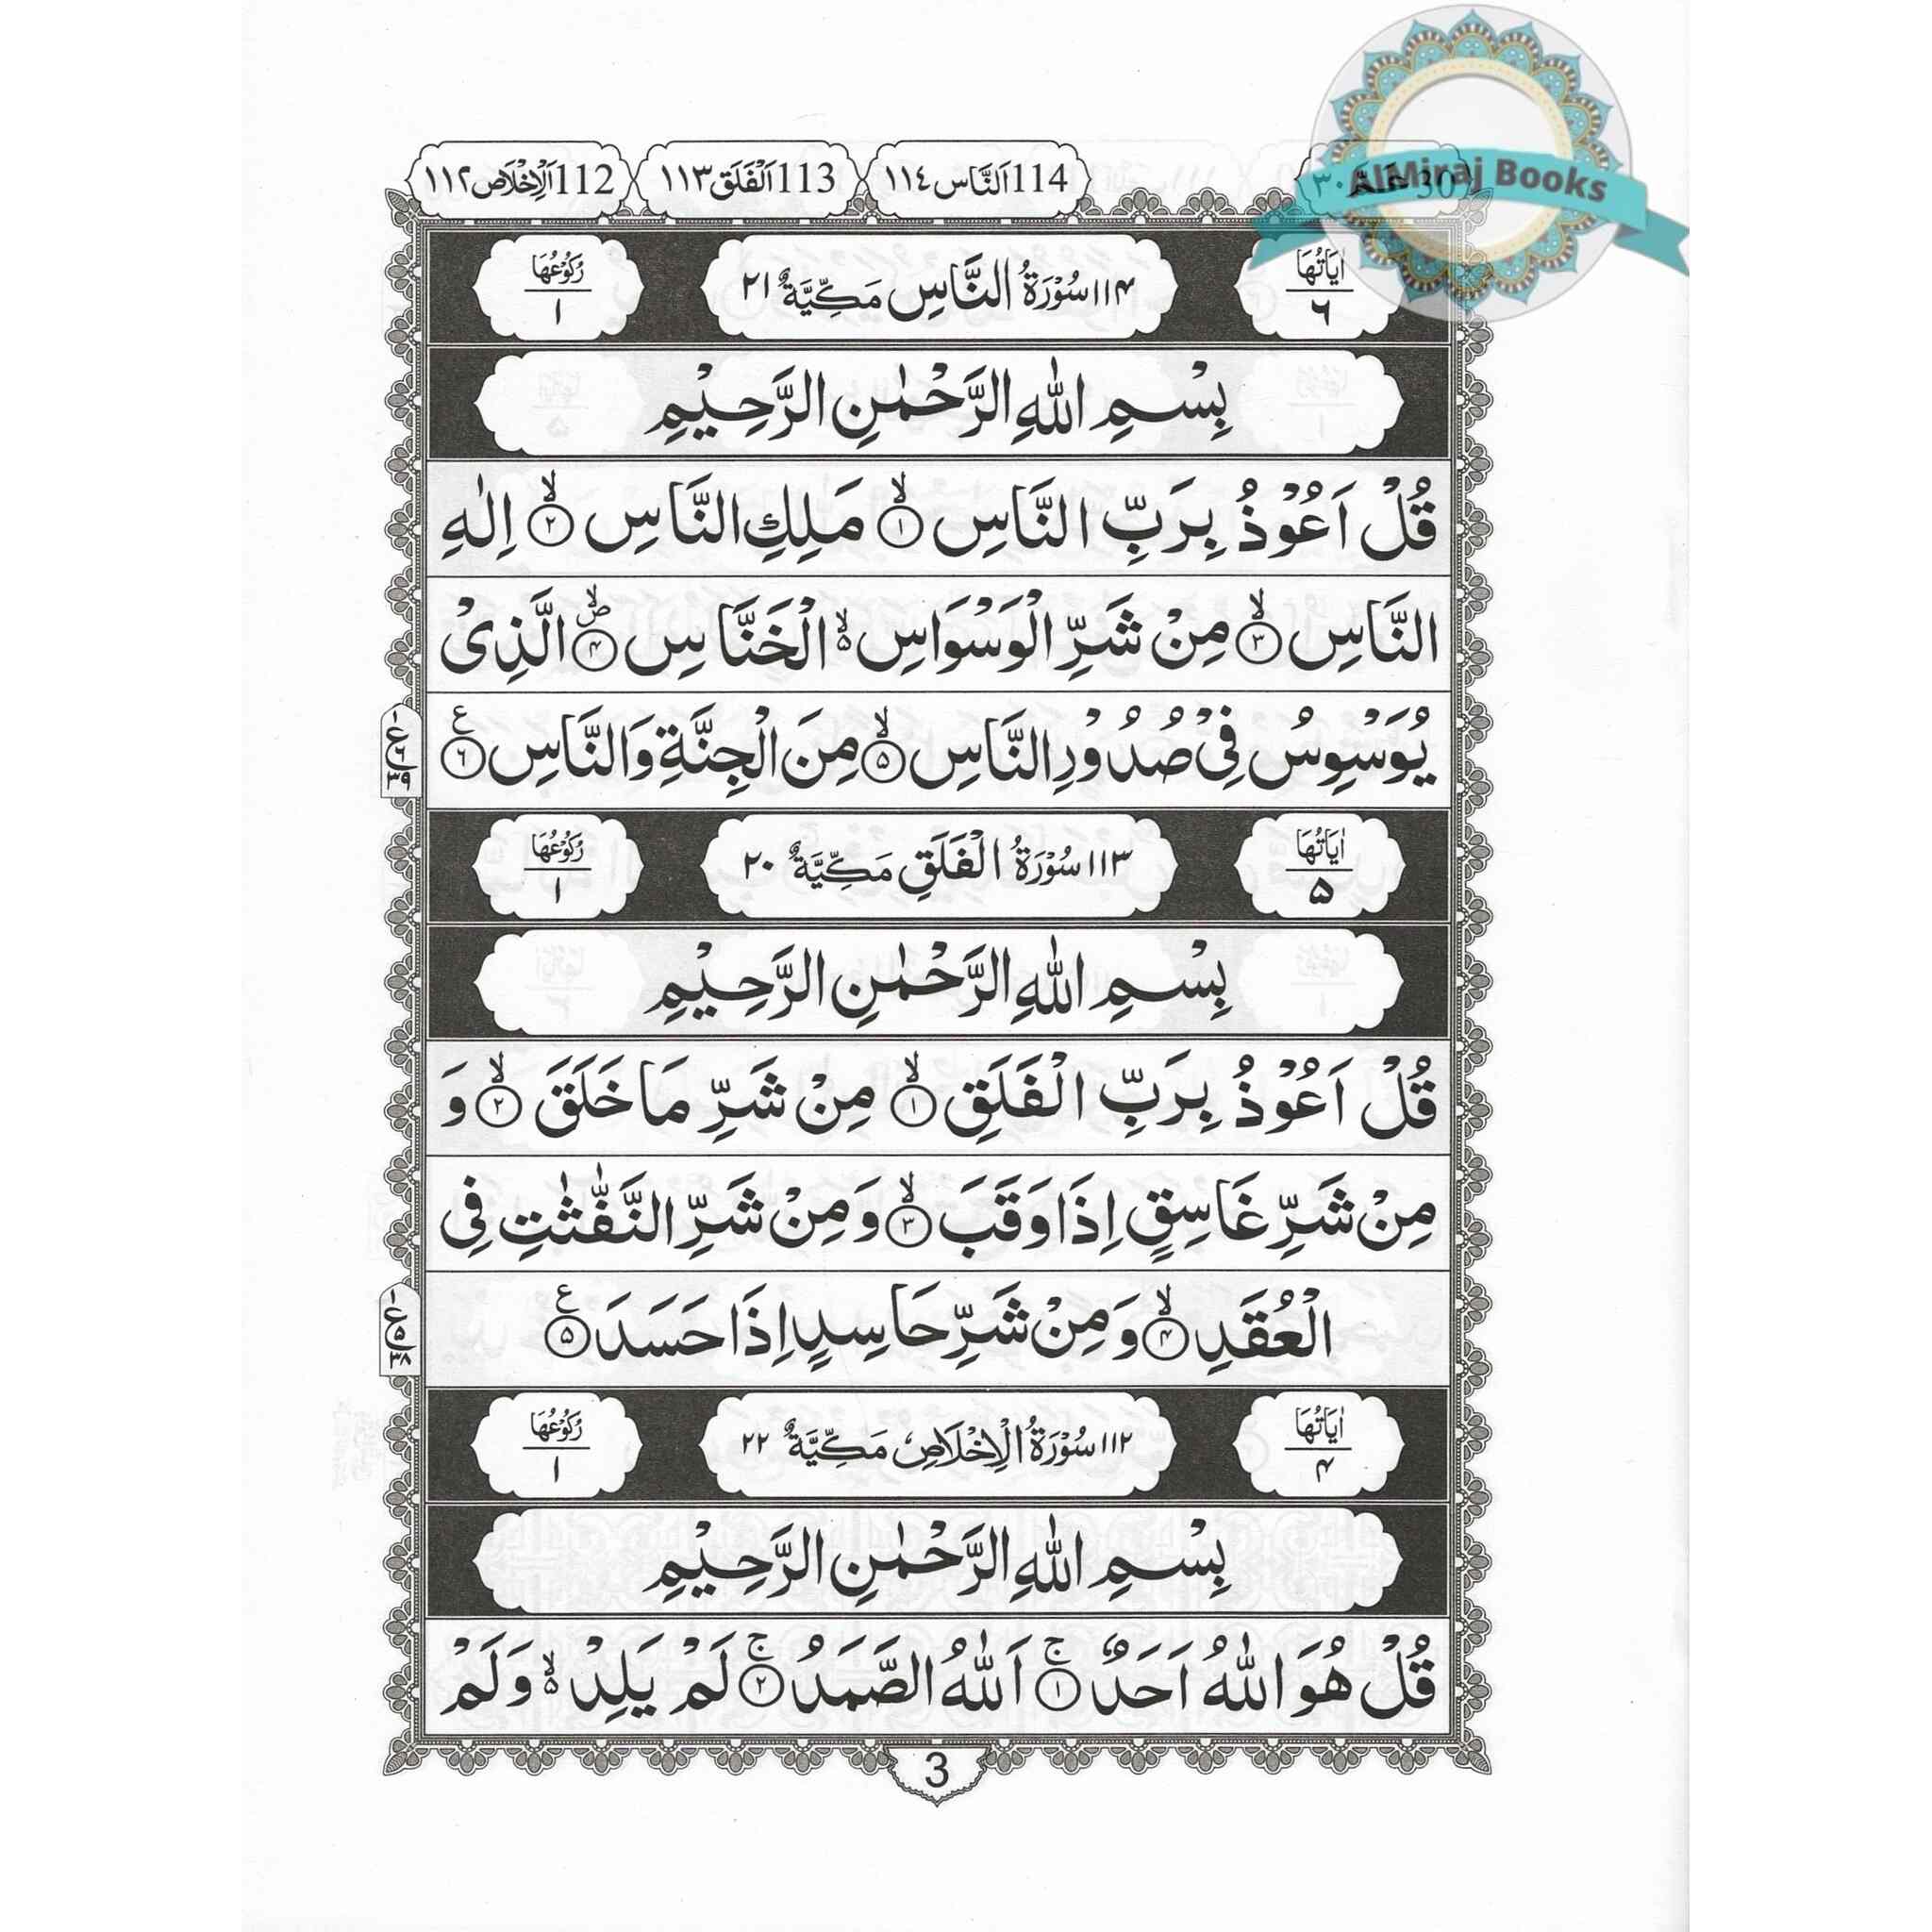 30 عَمّ ٣٠ 114 اَلنَّاس ١١٤ 113 اَلْفَلَق ١١٣ 112 اَلْاِخْلَاص ١١٢
AlMiraj Books
اٰيَاتُهَا ٦ ١١٤ سُوْرَةُ النَّاسِ مَكِّيَّةٌ ٢١ رُكُوْعُهَا ١
بِسْمِ اللّٰهِ الرَّحْمٰنِ الرَّحِيْمِ
قُلْ اَعُوْذُ بِرَبِّ النَّاسِ ۙ﴿١﴾ مَلِكِ النَّاسِ ۙ﴿٢﴾ اِلٰهِ
النَّاسِ ۙ﴿٣﴾ مِنْ شَرِّ الْوَسْوَاسِ ۙ۬ الْخَنَّاسِ ۪ۙ﴿٤﴾ الَّذِىْ
يُوَسْوِسُ فِىْ صُدُوْرِ النَّاسِ ۙ﴿٥﴾ مِنَ الْجِنَّةِ وَالنَّاسِ ﴿٦﴾ ع
اٰيَاتُهَا ٥ ١١٣ سُوْرَةُ الْفَلَقِ مَكِّيَّةٌ ٢٠ رُكُوْعُهَا ١
بِسْمِ اللّٰهِ الرَّحْمٰنِ الرَّحِيْمِ
قُلْ اَعُوْذُ بِرَبِّ الْفَلَقِ ۙ﴿١﴾ مِنْ شَرِّ مَا خَلَقَ ۙ﴿٢﴾ وَ
مِنْ شَرِّ غَاسِقٍ اِذَا وَقَبَ ۙ﴿٣﴾ وَمِنْ شَرِّ النَّفّٰثٰتِ فِى
الْعُقَدِ ۙ﴿٤﴾ وَمِنْ شَرِّ حَاسِدٍ اِذَا حَسَدَ ﴿٥﴾ ع
اٰيَاتُهَا ٤ ١١٢ سُوْرَةُ الْاِخْلَاصِ مَكِّيَّةٌ ٢٢ رُكُوْعُهَا ١
بِسْمِ اللّٰهِ الرَّحْمٰنِ الرَّحِيْمِ
قُلْ هُوَ اللّٰهُ اَحَدٌ ۚ﴿١﴾ اَللّٰهُ الصَّمَدُ ۚ﴿٢﴾ لَمْ يَلِدْ ۙ۬ وَلَمْ
3